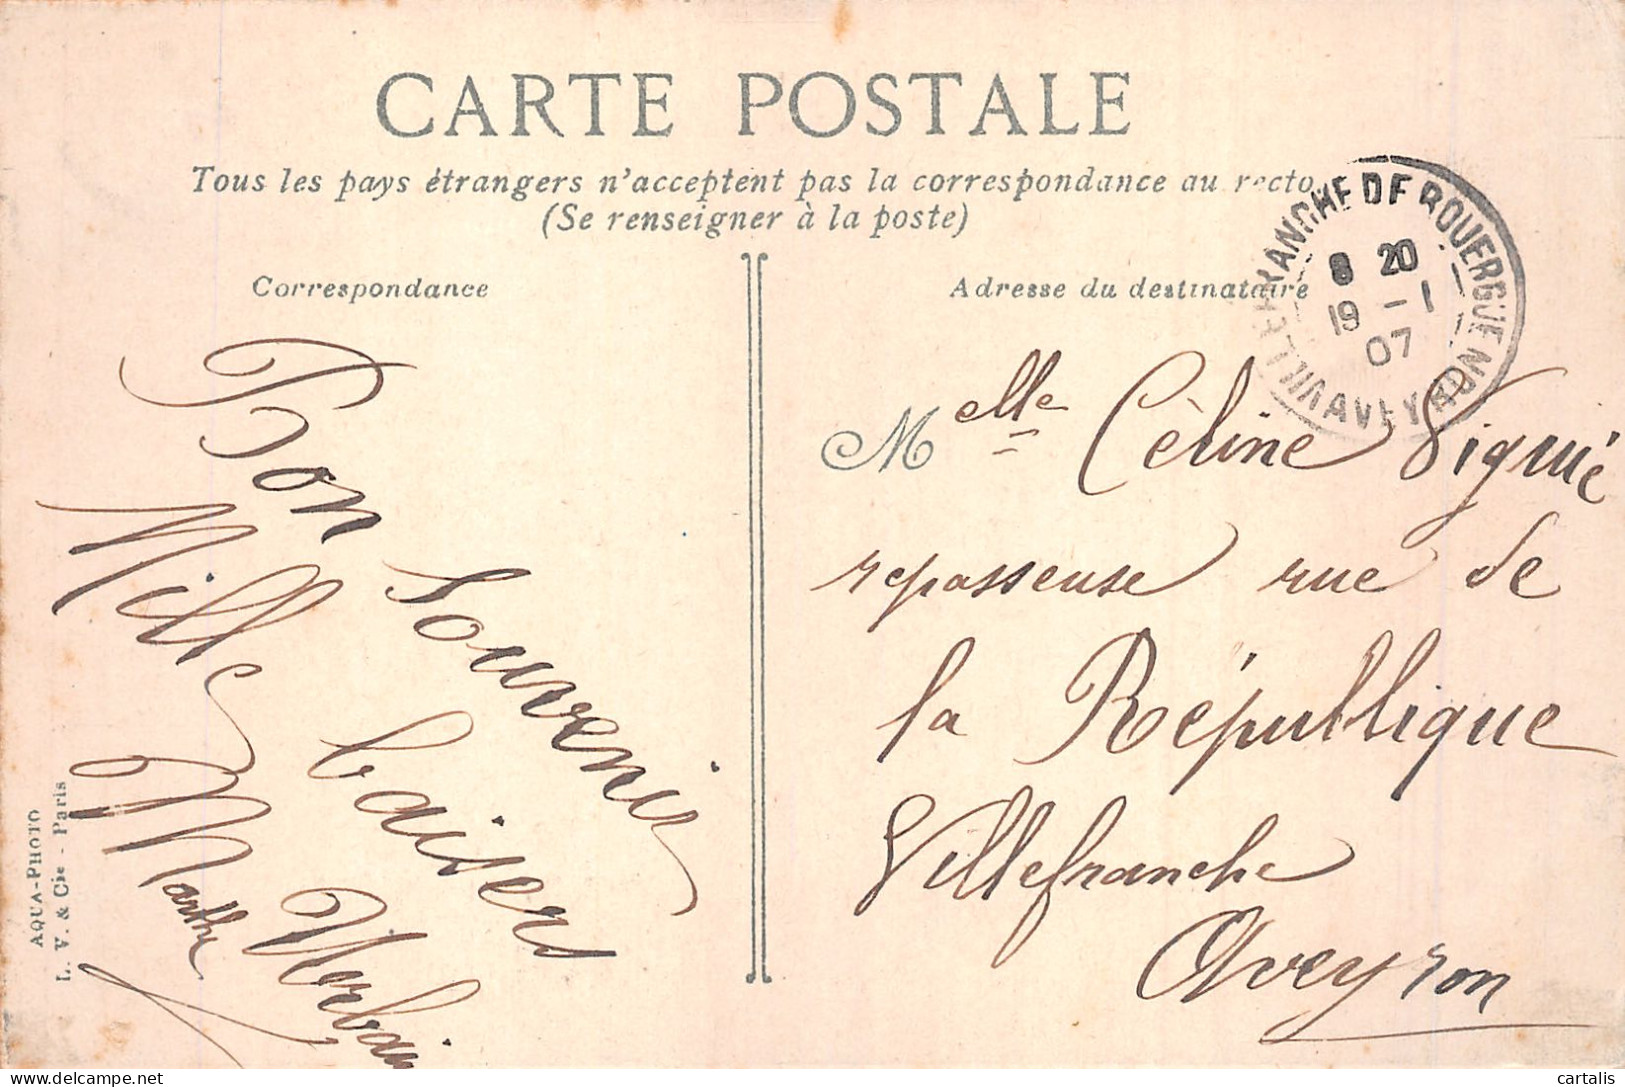 CARTE POSTALE
Tous les pays étrangers n'acceptent pas la correspondance au recto
(Se renseigner à la poste)
Correspondance
Adresse du destinataire
VILLEFRANCHE DE ROUERGUE AVEYRON
8 20
19 -1
07
Bon Souvenir
Mille baisers
Marthe
Melle Cèline Viguié
repasseuse rue de
la République
Villefranche
Aveyron
AQUA-PHOTO
L. V. & Cie - Paris
cartalis